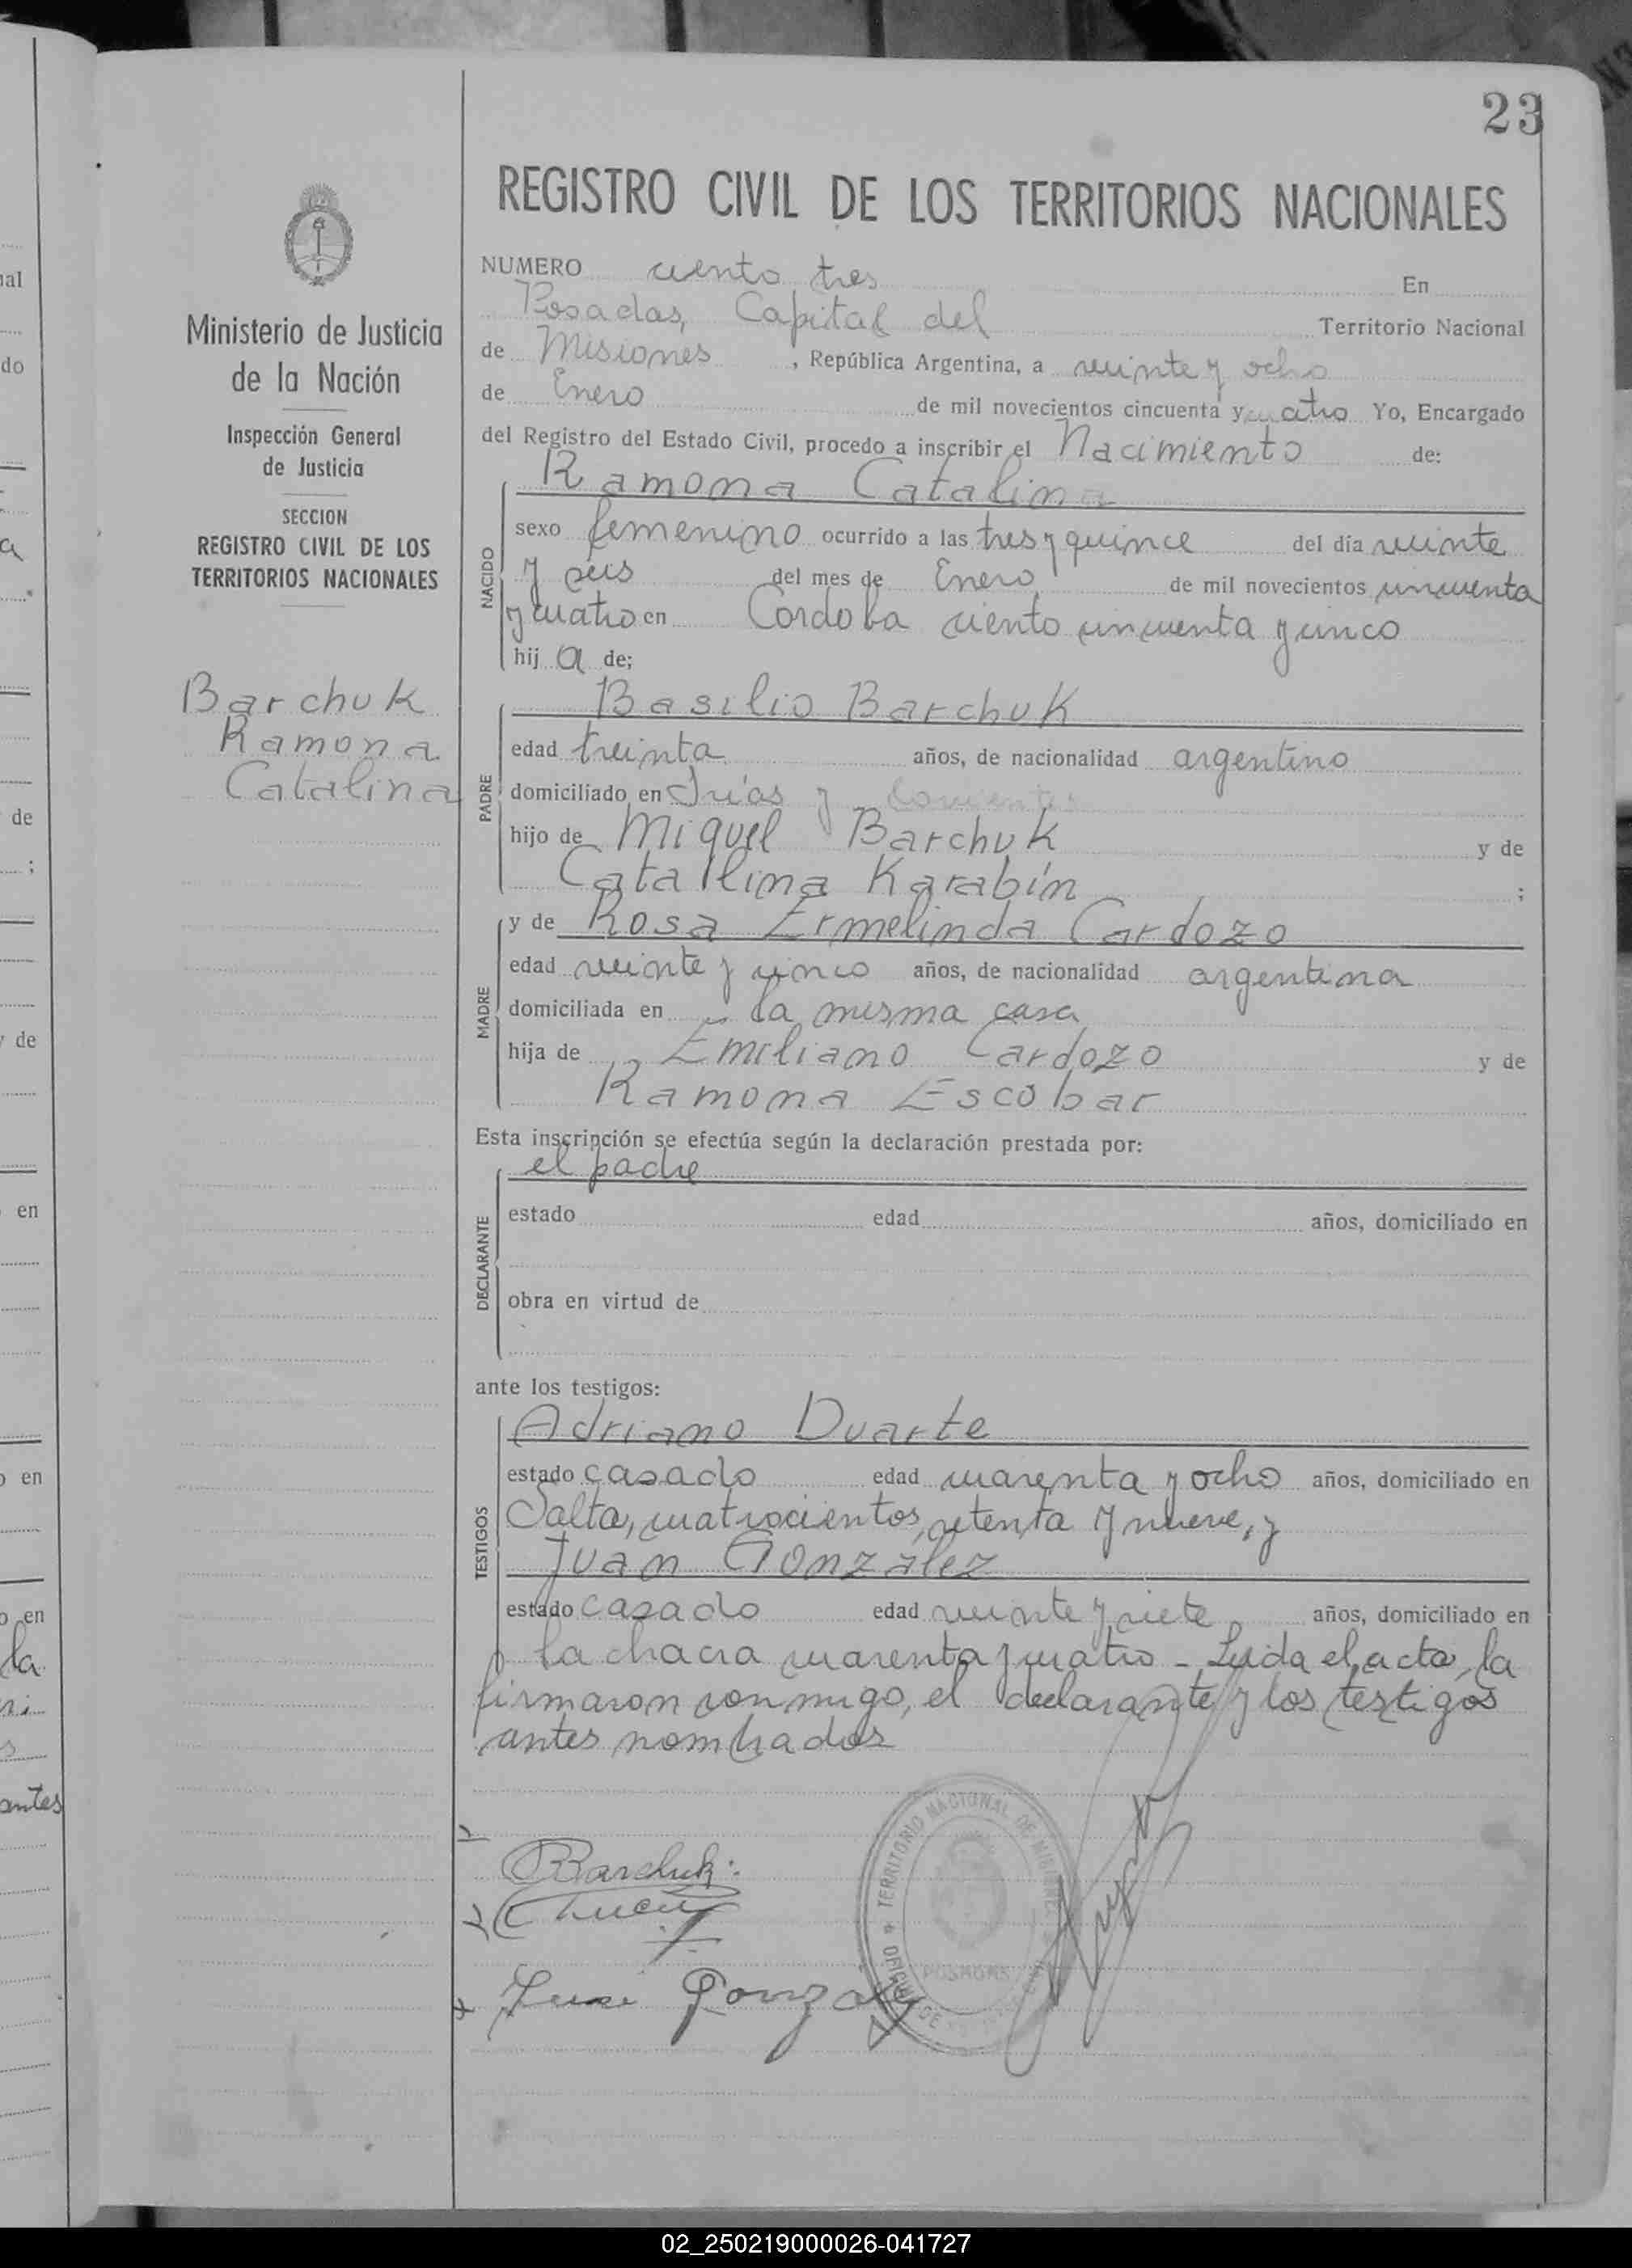 23
REGISTRO CIVIL DE LOS TERRITORIOS NACIONALES
Ministerio de Justicia
de la Nación
Inspección General
de Justicia
SECCION
REGISTRO CIVIL DE LOS
TERRITORIOS NACIONALES
Barchuk
Ramona
Catalina
NUMERO ciento tres En
Posadas, Capital del Territorio Nacional
de Misiones , República Argentina, a veinte y ocho
de Enero de mil novecientos cincuenta y cuatro Yo, Encargado
del Registro del Estado Civil, procedo a inscribir el Nacimiento de:
Ramona Catalina
NACIDO
sexo femenino ocurrido a las tres y quince del día veinte
y seis del mes de Enero de mil novecientos cincuenta
y cuatro en Cordoba ciento cincuenta y cinco
hij a de;
Basilio Barchuk
PADRE
edad treinta años, de nacionalidad argentino
domiciliado en y
hijo de Miguel Barchuk y de
Catallina Karabín ;
y de Rosa Ermelinda Cardozo
MADRE
edad veinte y cinco años, de nacionalidad argentina
domiciliada en la misma casa
hija de Emiliano Cardozo y de
Ramona Escobar
Esta inscripción se efectúa según la declaración prestada por:
el padre
DECLARANTE
estado edad años, domiciliado en
obra en virtud de
ante los testigos:
Adriano Duarte
TESTIGOS
estado casado edad cuarenta y ocho años, domiciliado en
Salta, cuatrocientos setenta y nueve, y
Juan González
estado casado edad veinte y siete años, domiciliado en
la chacra cuarenta y cuatro - Leida el acta, la
firmaron conmigo, el declarante y los testigos
antes nombrados
Barchuk
TERRITORIO NACIONAL DE MISIONES
POSADAS
02_250219000026-041727